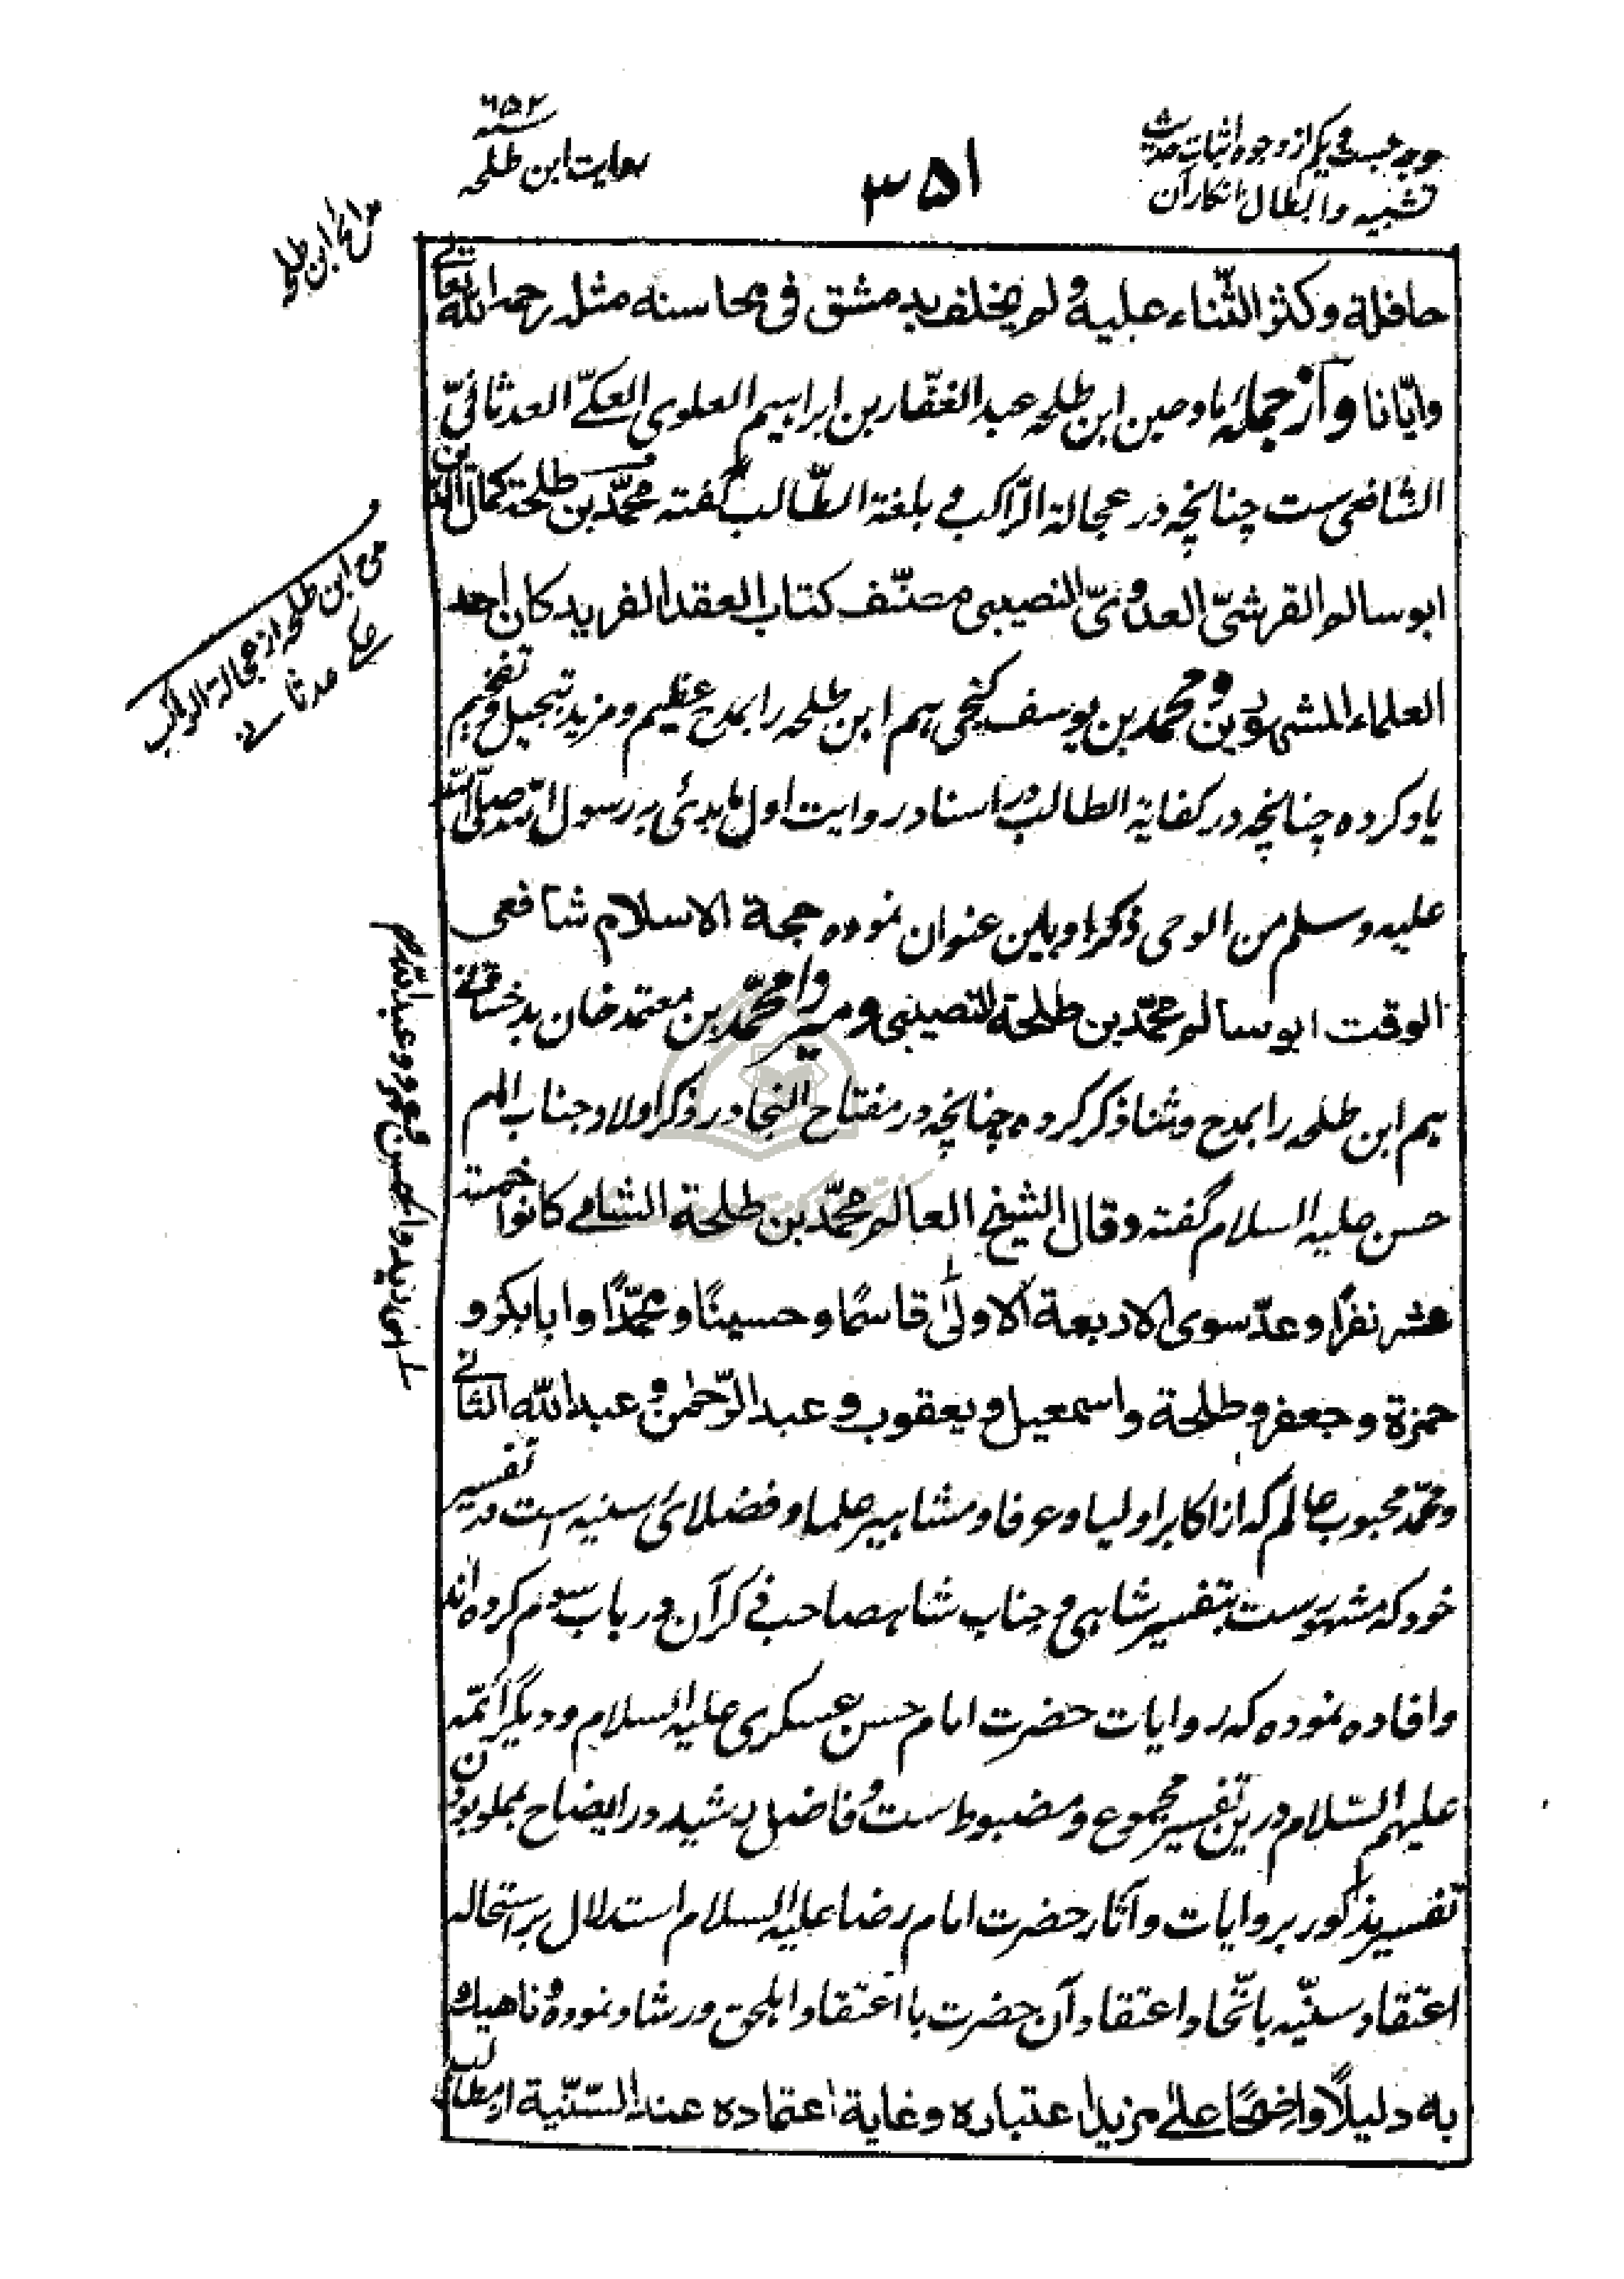 وجه بست و یکم از وجوه اثبات حدیث
تشبیه و ابطال انکار آن
۳۵۱
سنه ۶۵۲
روایت ابن طلحه
حافلة وكثر الثّناء عليه ولم يخلف بدمشق فى محاسنه مثله رحمه الله تعالى
وايّانا و از جملهٔ مادحین ابن طلحه عبد الغفّار بن ابراهیم العلوی العکّی العدثانیّ
الشافعی ست چنانچه در عجالة الراكب و بلغة الطّالب گفته محمّد بن طلحة كمال الدين
ابو سالم القرشىّ العدوىّ النصيبى مصنّف كتاب العقد الفريد كان احد
العلماء المشهورين و محمد بن یوسف کنجی هم ابن طلحه را بمدح عظیم و مزید تبجیل و تفخیم
یاد کرده چنانچه در کفایة الطالب در اسناد روایت اول ما بدئ به رسول الله صلّى الله
عليه وسلم من الوحى ذکر او باین عنوان نموده حجة الاسلام شافعى
الوقت ابو سالم محمّد بن طلحة النصيبى و میرزا محمّد بن معتمد خان بدخشانی
هم ابن طلحه را بمدح و ثنا ذکر کرده چنانچه در مفتاح النجا در ذکر اولاد جناب امام
حسن علیه السلام گفته وقال الشيخ العالم محمّد بن طلحة الشامى كانوا خمسة
عشر نفرًا وعدّ سوى الاربعة الاولىٰ قاسمًا وحسينًا ومحمّدًا وابا بكر و
حمزة وجعفر وطلحة واسمعيل ويعقوب وعبد الرّحمٰن وعبد الله الثانى
و محمّد محبوب عالم که از اکابر اولیا و عرفا و مشاهیر علما و فضلای سنیه است در تفسیر
خود که مشهور ست بتفسیر شاهی و جناب شاهصاحب ذکر آن در باب سوم کرده اند
و افاده نموده که روایات حضرت امام حسن عسکری علیه السلام و دیگر ائمّه
علیهم السّلام درین تفسیر مجموع و مضبوط ست و فاضل رشید در ایضاح بمملو بودن
تفسیر مذکور بروایات و آثار حضرت امام رضا علیه السلام استدلال بر استحاله
اعتقاد سنیّه باتّحاد اعتقاد آن حضرت با اعتقاد اهل حق و رشاد نموده وناهيك
به دليلًا واضحًا علىٰ مزيد اعتباره وغاية اعتماده عند السّنّية
مدح ابن طلحه از عجالة الراکب
عکی عدثانی